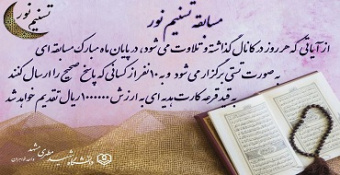 تسنیم نور
مسابقه تسنیم نور
از آیاتی که هر روز در کانال گذاشته و تلاوت می شود، در پایان ماه مبارک مسابقه ای
به صورت تستی برگزار می شود و به ۱۰ نفر از کسانی که پاسخ صحیح را ارسال کنند
به قید قرعه کارت هدیه ای به ارزش ۱۰۰۰۰۰۰ ریال تقدیم خواهد شد
دانشگاه شهید